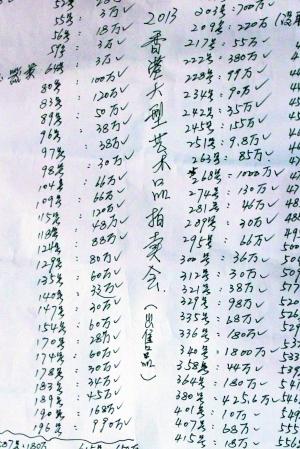 2013 香港大型艺术品拍卖会（出售品）
55号: 3万✓
56号: 18万✓
59号: 3万✓
64号: 3万✓
80号: 100万✓
83号: 120万✓
89号: 50万✓
96号: 38万✓
97号: 38万✓
98号: 30万✓
104号: 66万✓
109号: 66万✓
115号: 120万✓
118号: 48万✓
124号: 88万✓
129号: 80万✓
135号: 60万✓
140号: 33万✓
147号: 30万✓
154号: 60万✓
170号: 28万✓
174号: 60万✓
178号: 30万✓
183号: 34万✓
189号: 45万✓
190号: 168万✓
196号: 990万✓
203号: 700万✓
209号: 220万
217号: 55万✓
222号: 380万✓
228号: 99万✓
234号: 90万✓
242号: 35万✓
245号: 155万✓
251号: 9.8万✓
263号: 85万✓
268号: 1000万✓
274号: 130万✓
281号: 46万✓
289号: 30万✓
295号: 66万✓
300号: 36万✓
312号: 30万✓
321号: 38万✓
329号: 98万✓
335号: 68万✓
336号: 180万✓
340号: 1800万✓
358号: 44万✓
364号: 180万✓
380号: 425.6万✓
401号: 10万✓
407号: 68万✓
415号: 18万✓
587号: 180万